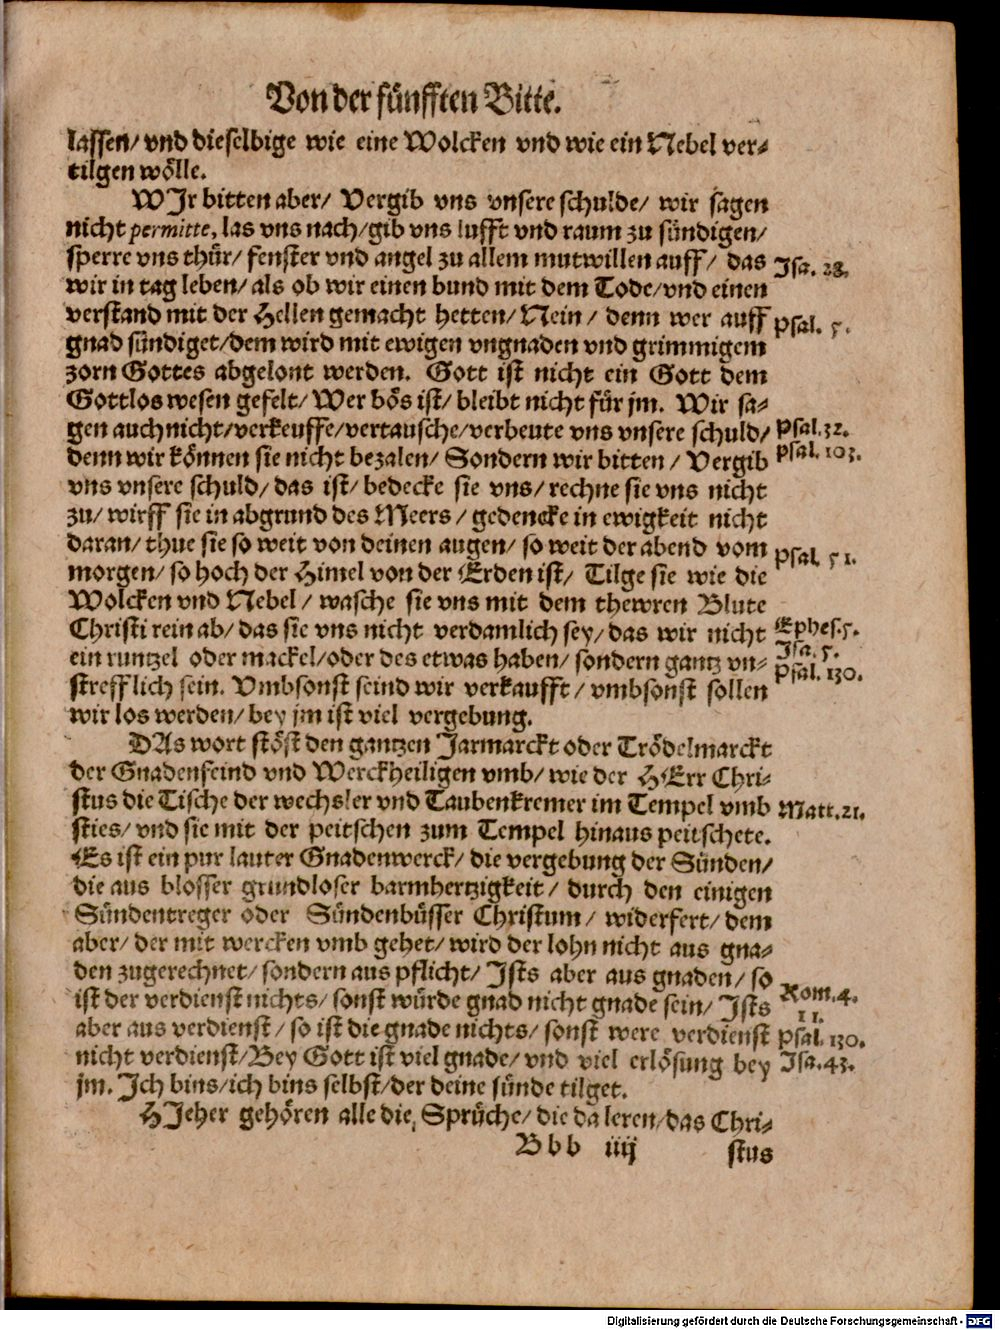 Von der fünfften Bitte.
lassen/ vnd dieselbige wie eine Wolcken vnd wie ein Nebel ver-
tilgen wölle.
WJr bitten aber/ Vergib vns vnsere schulde/ wir sagen
nicht permitte, las vns nach/ gib vns lufft vnd raum zu sündigen/
sperre vns thür/ fenster vnd angel zu allem mutwillen auff/ das
Jsa. 28.
wir in tag leben/ als ob wir einen bund mit dem Tode/ vnd einen
verstand mit der Hellen gemacht hetten/ Nein/ denn wer auff
Psal. 5.
gnad sündiget/ dem wird mit ewigen vngnaden vnd grimmigem
zorn Gottes abgelont werden. Gott ist nicht ein Gott dem
Gottlos wesen gefelt/ Wer bös ist/ bleibt nicht für jm. Wir sa-
gen auch nicht/ verkeuffe/ vertausche/ verbeute vns vnsere schuld/
Psal. 32.
denn wir können sie nicht bezalen/ Sondern wir bitten/ Vergib
Psal. 103.
vns vnsere schuld/ das ist/ bedecke sie vns/ rechne sie vns nicht
zu/ wirff sie in abgrund des Meers/ gedencke in ewigkeit nicht
daran/ thue sie so weit von deinen augen/ so weit der abend vom
Psal. 51.
morgen/ so hoch der Himel von der Erden ist/ Tilge sie wie die
Wolcken vnd Nebel/ wasche sie vns mit dem thewren Blute
Christi rein ab/ das sie vns nicht verdamlich sey/ das wir nicht
Ephes. 5.
ein runtzel oder mackel/ oder des etwas haben/ sondern gantz vn-
Jsa. 5.
Psal. 130.
strefflich sein. Vmbsonst seind wir verkaufft/ vmbsonst sollen
wir los werden/ bey jm ist viel vergebung.
DAs wort stöst den gantzen Jarmarckt oder Trödelmarckt
der Gnadenfeind vnd Werckheiligen vmb/ wie der HErr Chri-
stus die Tische der wechsler vnd Taubenkremer im Tempel vmb
Matt. 21.
sties/ vnd sie mit der peitschen zum Tempel hinaus peitschete.
Es ist ein pur lauter Gnadenwerck/ die vergebung der Sünden/
die aus blosser grundloser barmhertzigkeit/ durch den einigen
Sündentreger oder Sündenbüsser Christum/ widerfert/ dem
aber/ der mit wercken vmb gehet/ wird der lohn nicht aus gna-
den zugerechnet/ sondern aus pflicht/ Jsts aber aus gnaden/ so
ist der verdienst nichts/ sonst würde gnad nicht gnade sein/ Jsts
Rom. 4.
11.
aber aus verdienst/ so ist die gnade nichts/ sonst were verdienst
Psal. 130.
nicht verdienst/ Bey Gott ist viel gnade/ vnd viel erlösung bey
Jsa. 43.
jm. Jch bins/ ich bins selbst/ der deine sünde tilget.
HJeher gehören alle die Sprüche/ die da leren/ das Chri-
Bbb iiij
stus
Digitalisierung gefördert durch die Deutsche Forschungsgemeinschaft - DFG